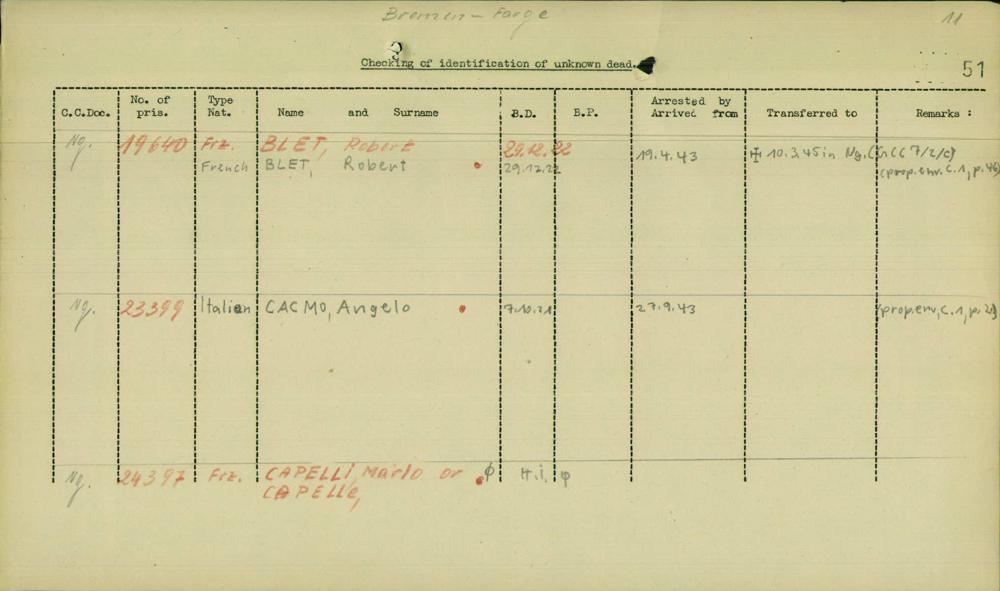 Bremen - Farge
11
Checking of identification of unknown dead.
51
C.C.Doc. No. of pris. Type Nat. Name and Surname B.D. B.P. Arrested by Arrived from Transferred to Remarks :
Ng. 19640 Frz. BLET, Robert 29.12.22
French BLET, Robert 29.12.22 19.4.43 10.3.45 in Ng. (in CC 7/2/c)
(prop.env. C.1, p. 46)
Ng. 23399 Italien CACMO, Angelo 7.10.21 27.9.43 (prop.env, C.1, p. 21)
Ng. 24397 Frz. CAPELLI, Mario or ϕ H.i. φ
CAPELLE,